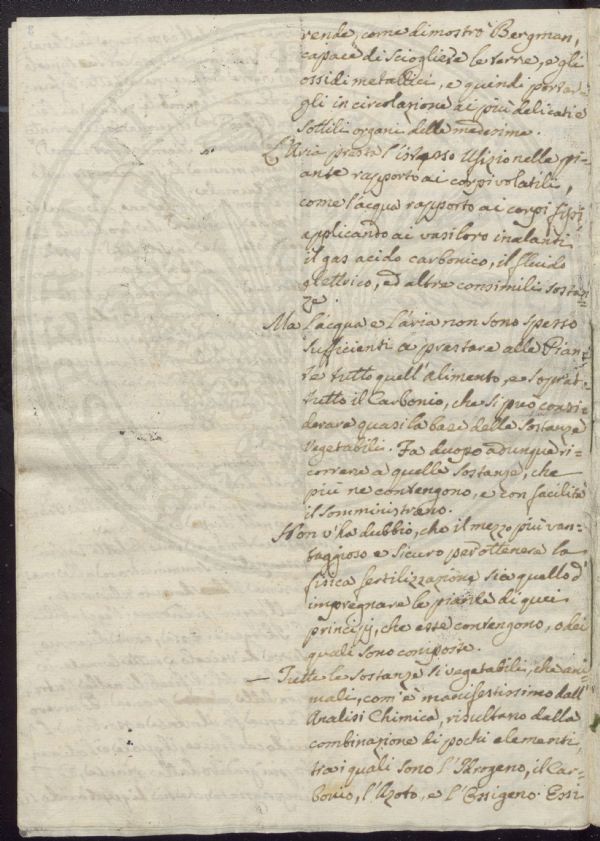 rende, come dimostrò Bergman,
capace di sciogliere le terre, e gli
ossidi metallici, e quindi portar-
gli in circolazione ai più delicati e
sottili organi delle medesime.
L'Aria presta l'istesso Ufizio nelle pi-
ante rapporto ai corpi volatili,
come l'acqua rapporto ai corpi fissi
applicando ai vasi loro inalanti
il gas acido carbonico, il fluido
elettrico, ed altre consimili sostan-
ze.
Ma l'acqua e l'aria non sono spesso
sufficienti a prestare alle Pian-
te tutto quell'alimento, e soprat-
tutto il Carbonio, che si può consi-
derare quasi la base delle Sostanze
vegetabili. Fa duopo adunque ri-
correre a quelle sostanze, che
più ne contengono, e con facilità
il somministrano.
Non v'ha dubbio, che il mezzo più van-
taggioso e sicuro per ottenere la
fisica fertilizzazione sia quello d'
impregnare le piante di quei
principj, che esse contengono, o dei
quali sono composte.
— Tutte le sostanze sì vegetabili, che ani-
mali, com'è manifestissimo dall'
Analisi Chimica, risultano dalla
combinazione di pochi elementi,
tra i quali sono l'Idrogeno, il Car-
bonio, l'Azoto, e l'Ossigeno. Essi